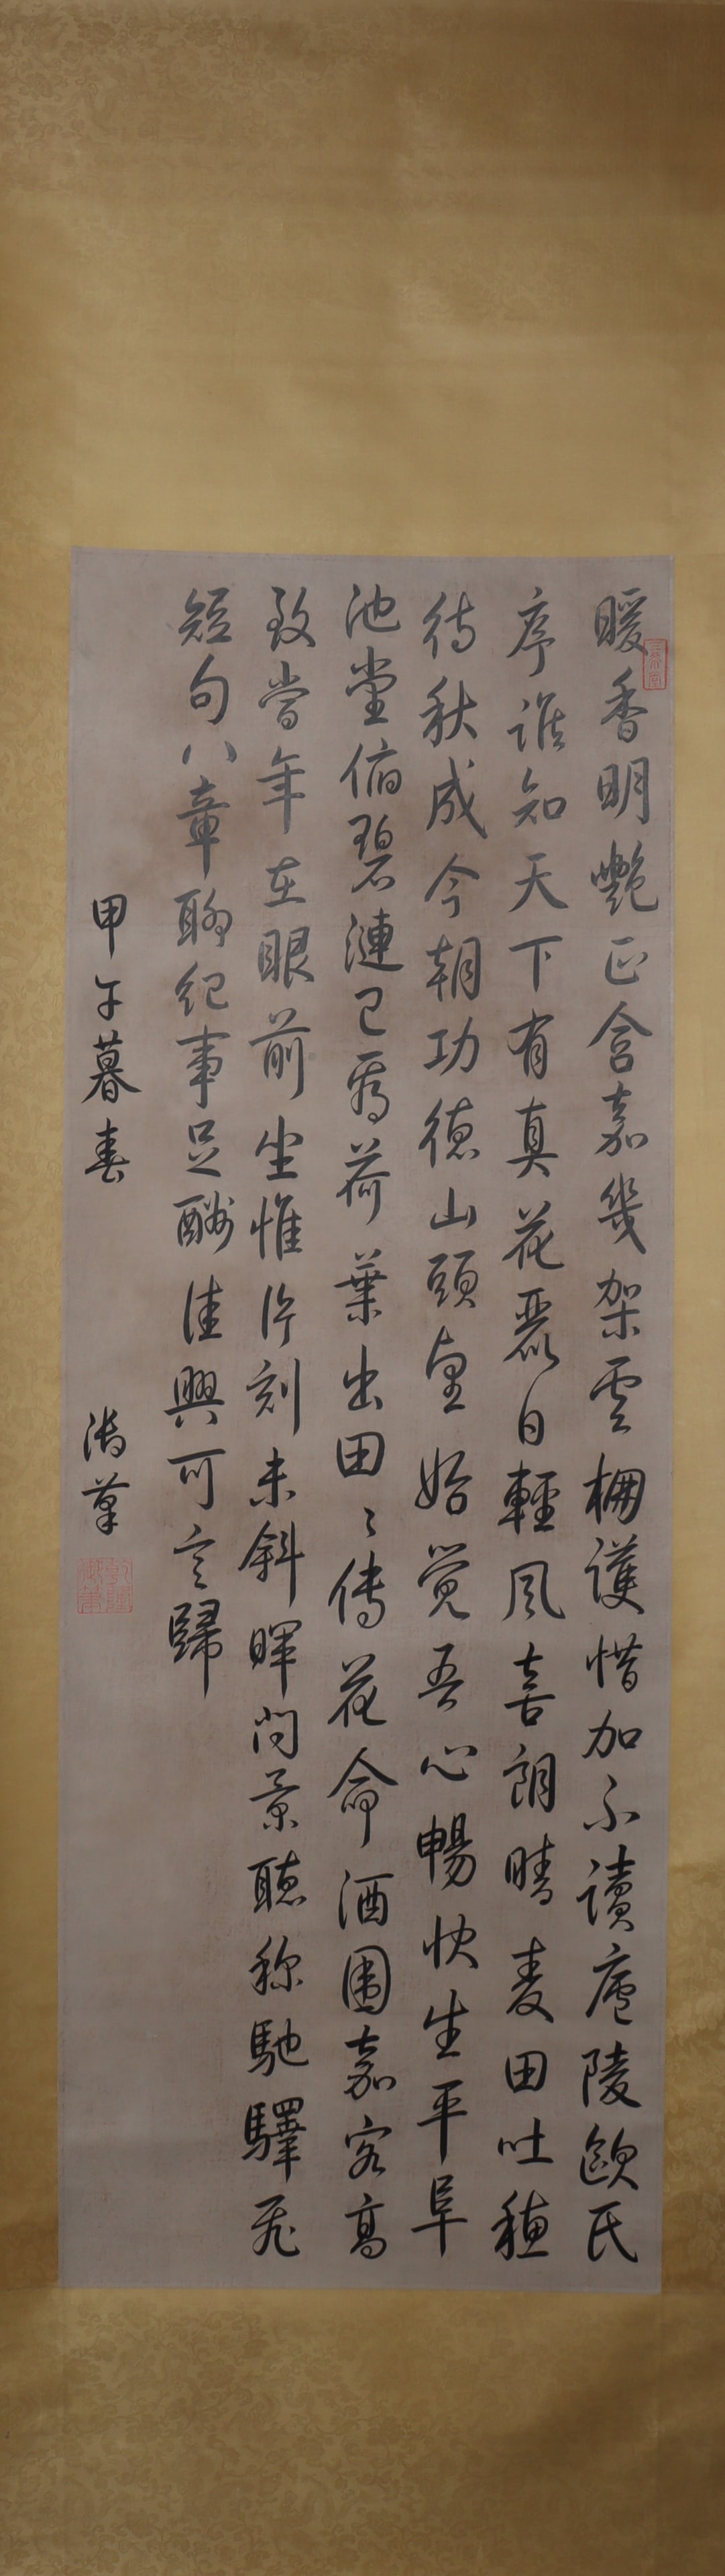 暖香明艷正含嘉幾架雲棚護惜加不讀廬陵歐氏
序誰知天下有真花麗日輕風喜朗晴麦田吐穗
待秋成今朝功德山頭望始覺吾心暢快生平阜
池堂俯碧漣已看荷葉出田〻傳花命酒圍嘉客高
致當年在眼前坐惟片刻未斜暉問景聽称馳驛飛
短句八章聊紀事足酬佳興可言歸
甲午暮春
御筆
三希堂
乾隆御筆